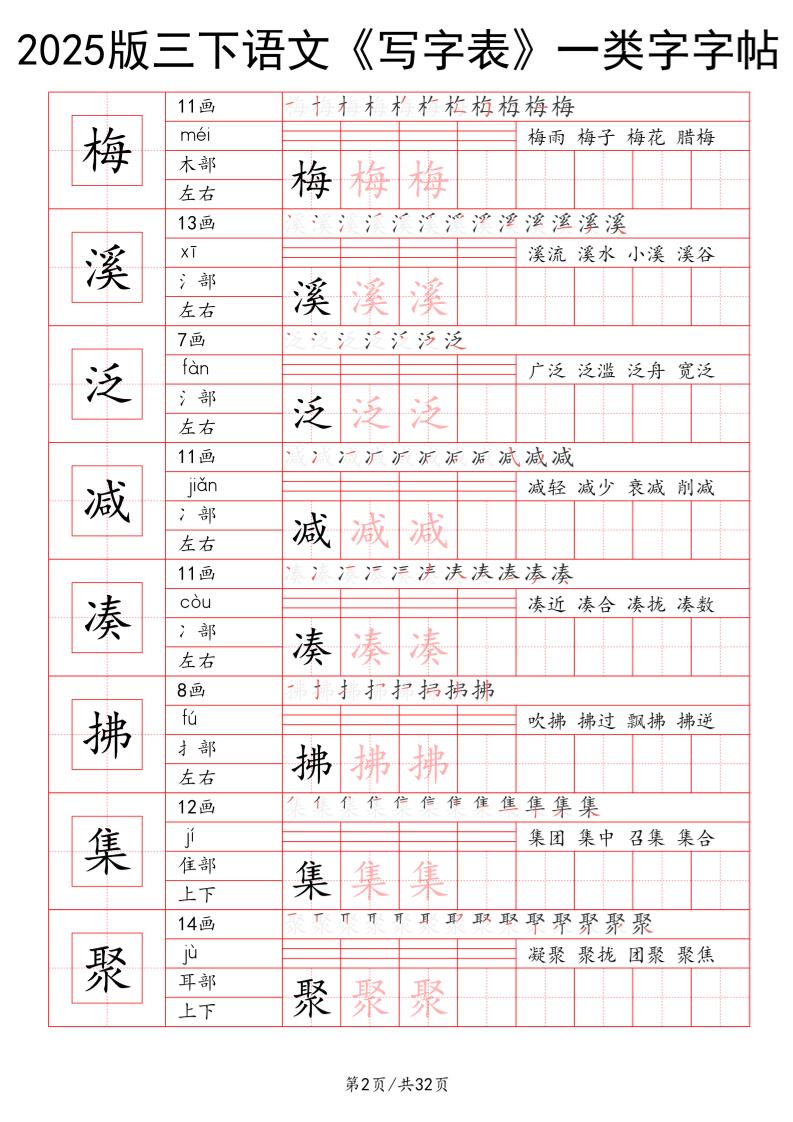 2025版三下语文《写字表》一类字字帖
梅
11画
méi
梅雨 梅子 梅花 腊梅
木部
左右
梅 梅 梅
溪
13画
xī
溪流 溪水 小溪 溪谷
氵部
左右
溪 溪 溪
泛
7画
fàn
广泛 泛滥 泛舟 宽泛
氵部
左右
泛 泛 泛
减
11画
jiǎn
减轻 减少 衰减 削减
冫部
左右
减 减 减
凑
11画
còu
凑近 凑合 凑拢 凑数
冫部
左右
凑 凑 凑
拂
8画
fú
吹拂 拂过 飘拂 拂逆
扌部
左右
拂 拂 拂
集
12画
jí
集团 集中 召集 集合
隹部
上下
集 集 集
聚
14画
jù
凝聚 聚拢 团聚 聚焦
耳部
上下
聚 聚 聚
第2页/共32页